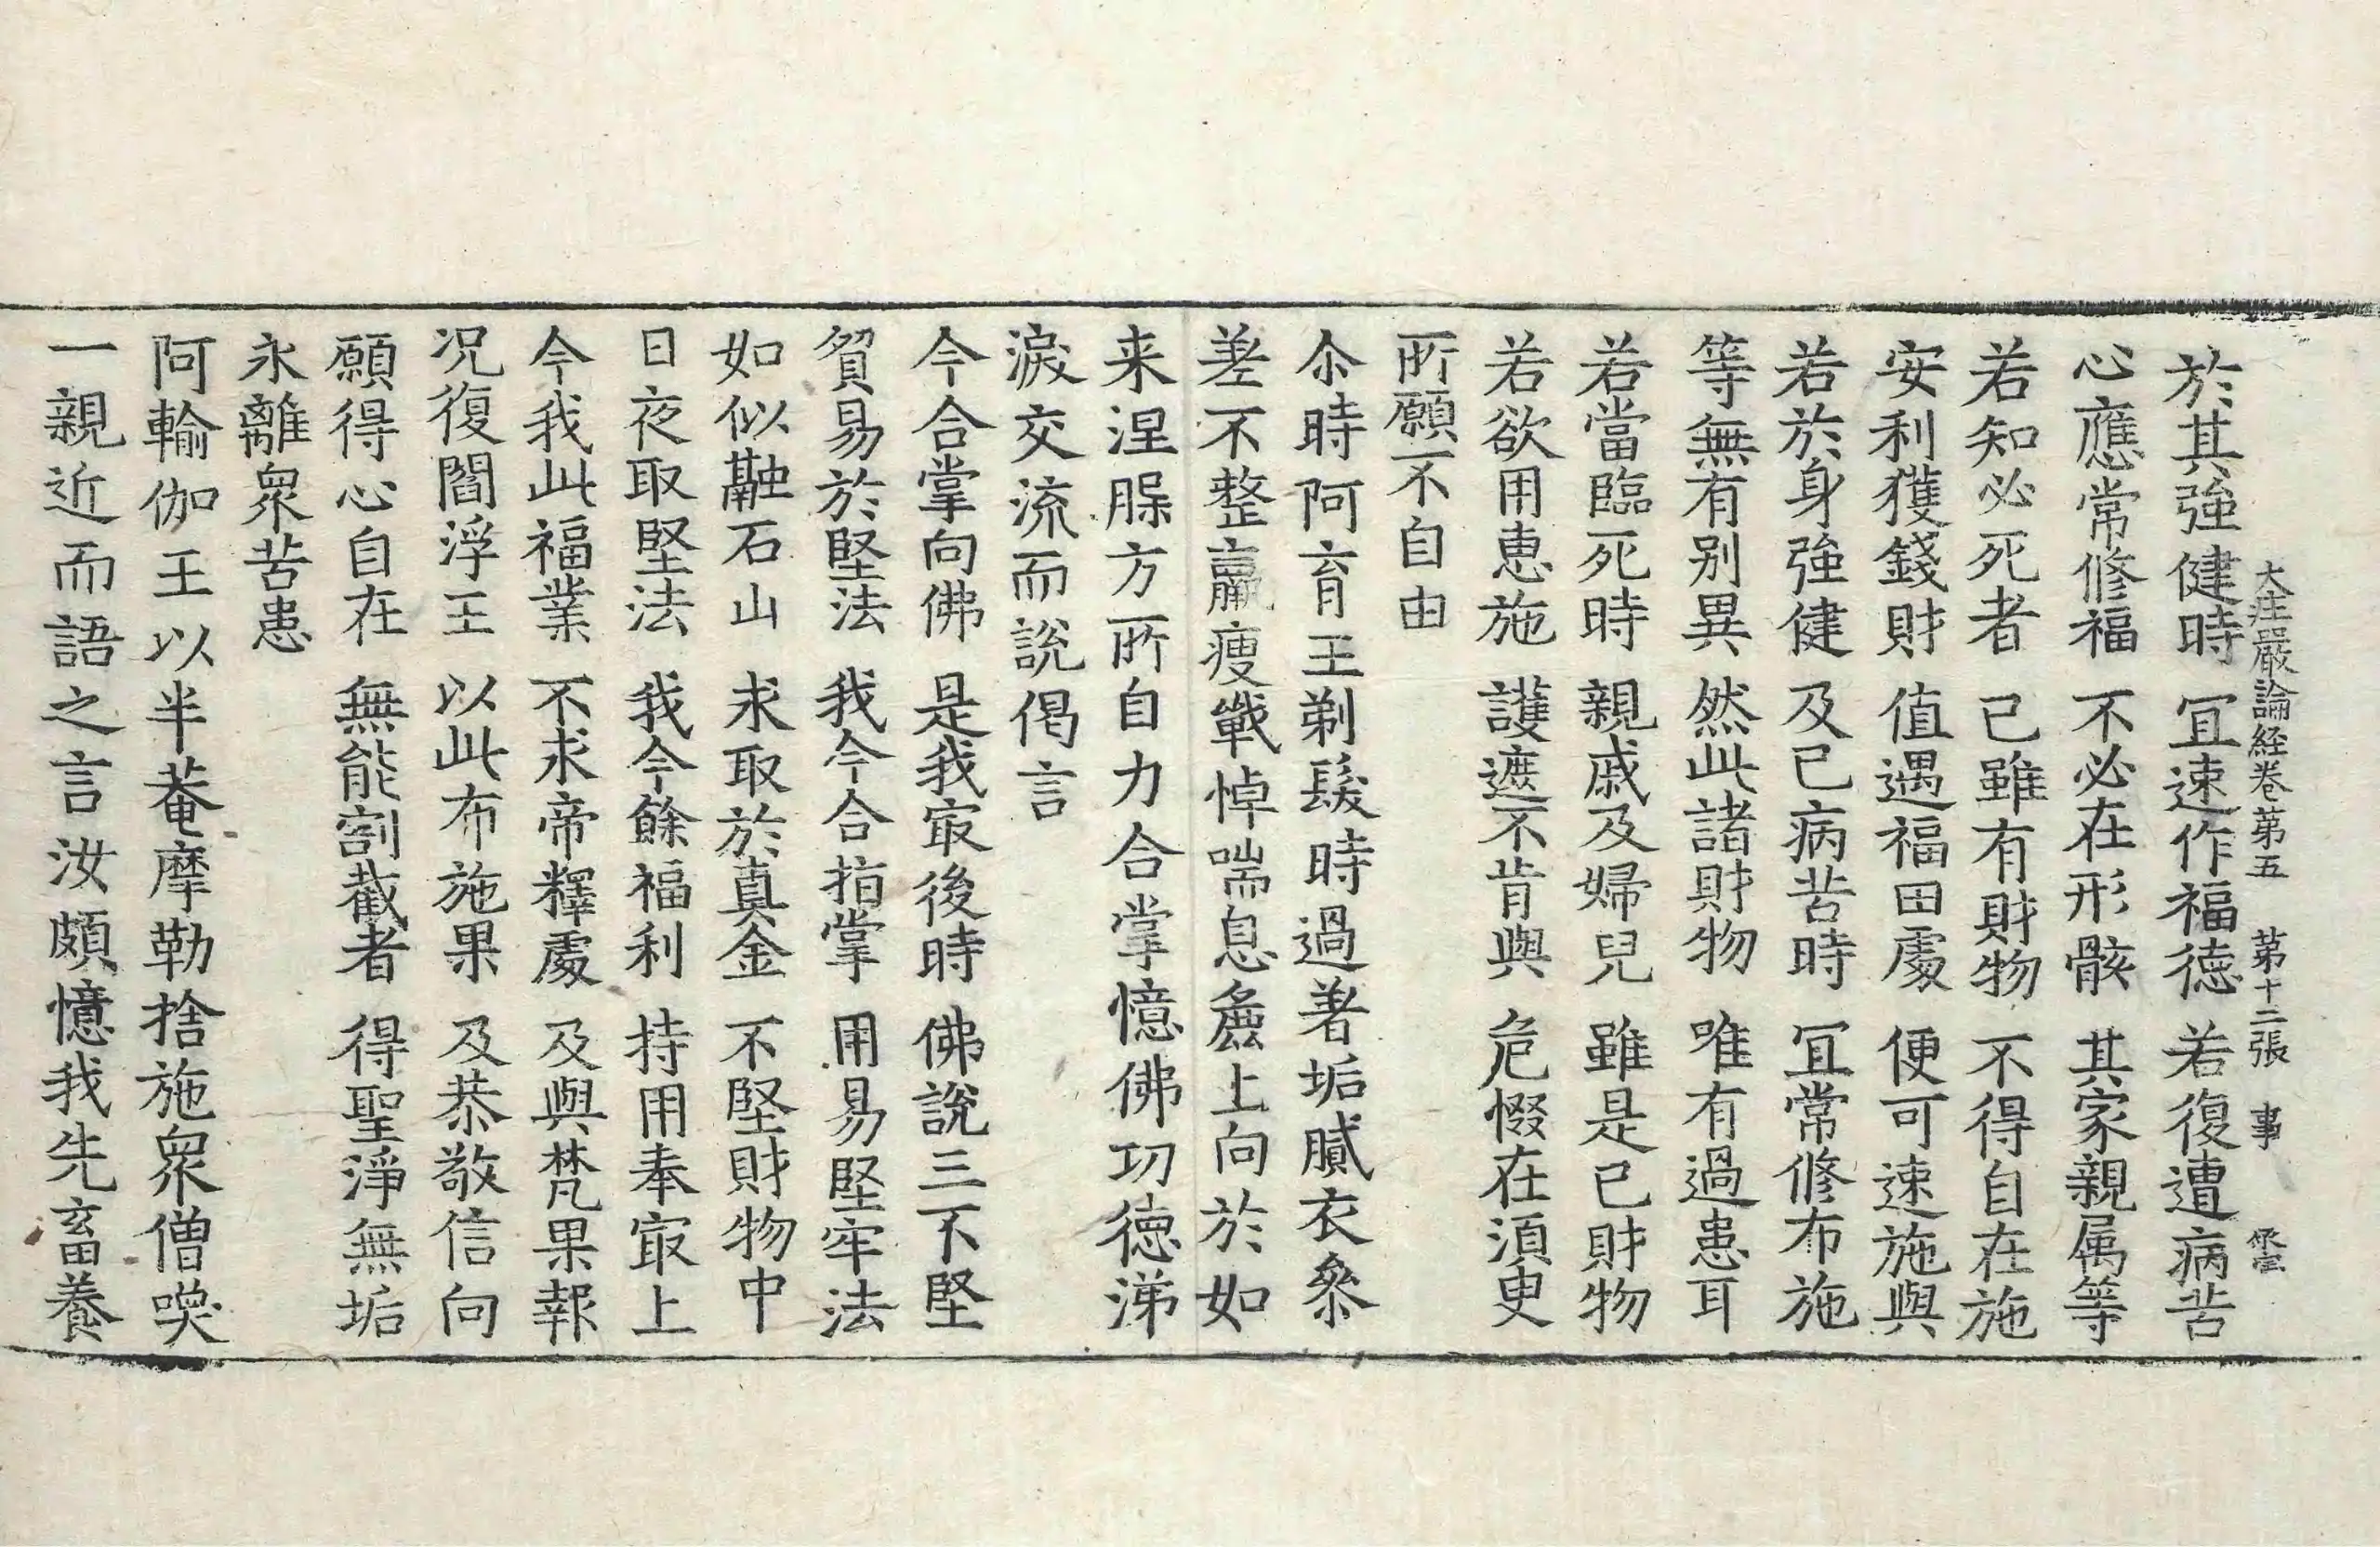 大庄嚴論経卷第五 第十二張 事
於其強健時 冝速作福徳 若復遭病苦
心應常修福 不必在形骸 其家親属等
若知必死者 己雖有財物 不得自在施
安利獲錢財 值遇福田處 便可速施與
若於身強健 及已病苦時 冝常修布施
等無有别異 然此諸財物 唯有過患耳
若當臨死時 親戚及婦兒 雖是已財物
若欲用惠施 護遮不肯與 危惙在須臾
所願不自由
尒時阿育王剃髮時過著垢膩衣叅
差不整羸瘦戰悼喘息麁上向於如
来涅脲方所自力合掌憶佛功徳涕
淚交流而說偈言
今合掌向佛 是我㝡後時 佛說三不堅
貿易於堅法 我今合指掌 用易堅牢法
如似融石山 求取於真金 不堅財物中
日夜取堅法 我今餘福利 持用奉㝡上
今我此福業 不求帝釋處 及與梵果報
况復閻浮王 以此布施果 及恭敬信向
願得心自在 無能割截者 得聖淨無垢
永離衆苦患
阿輸伽王以半菴摩勒捨施衆僧喚
一親近而語之言汝頗憶我先畜養